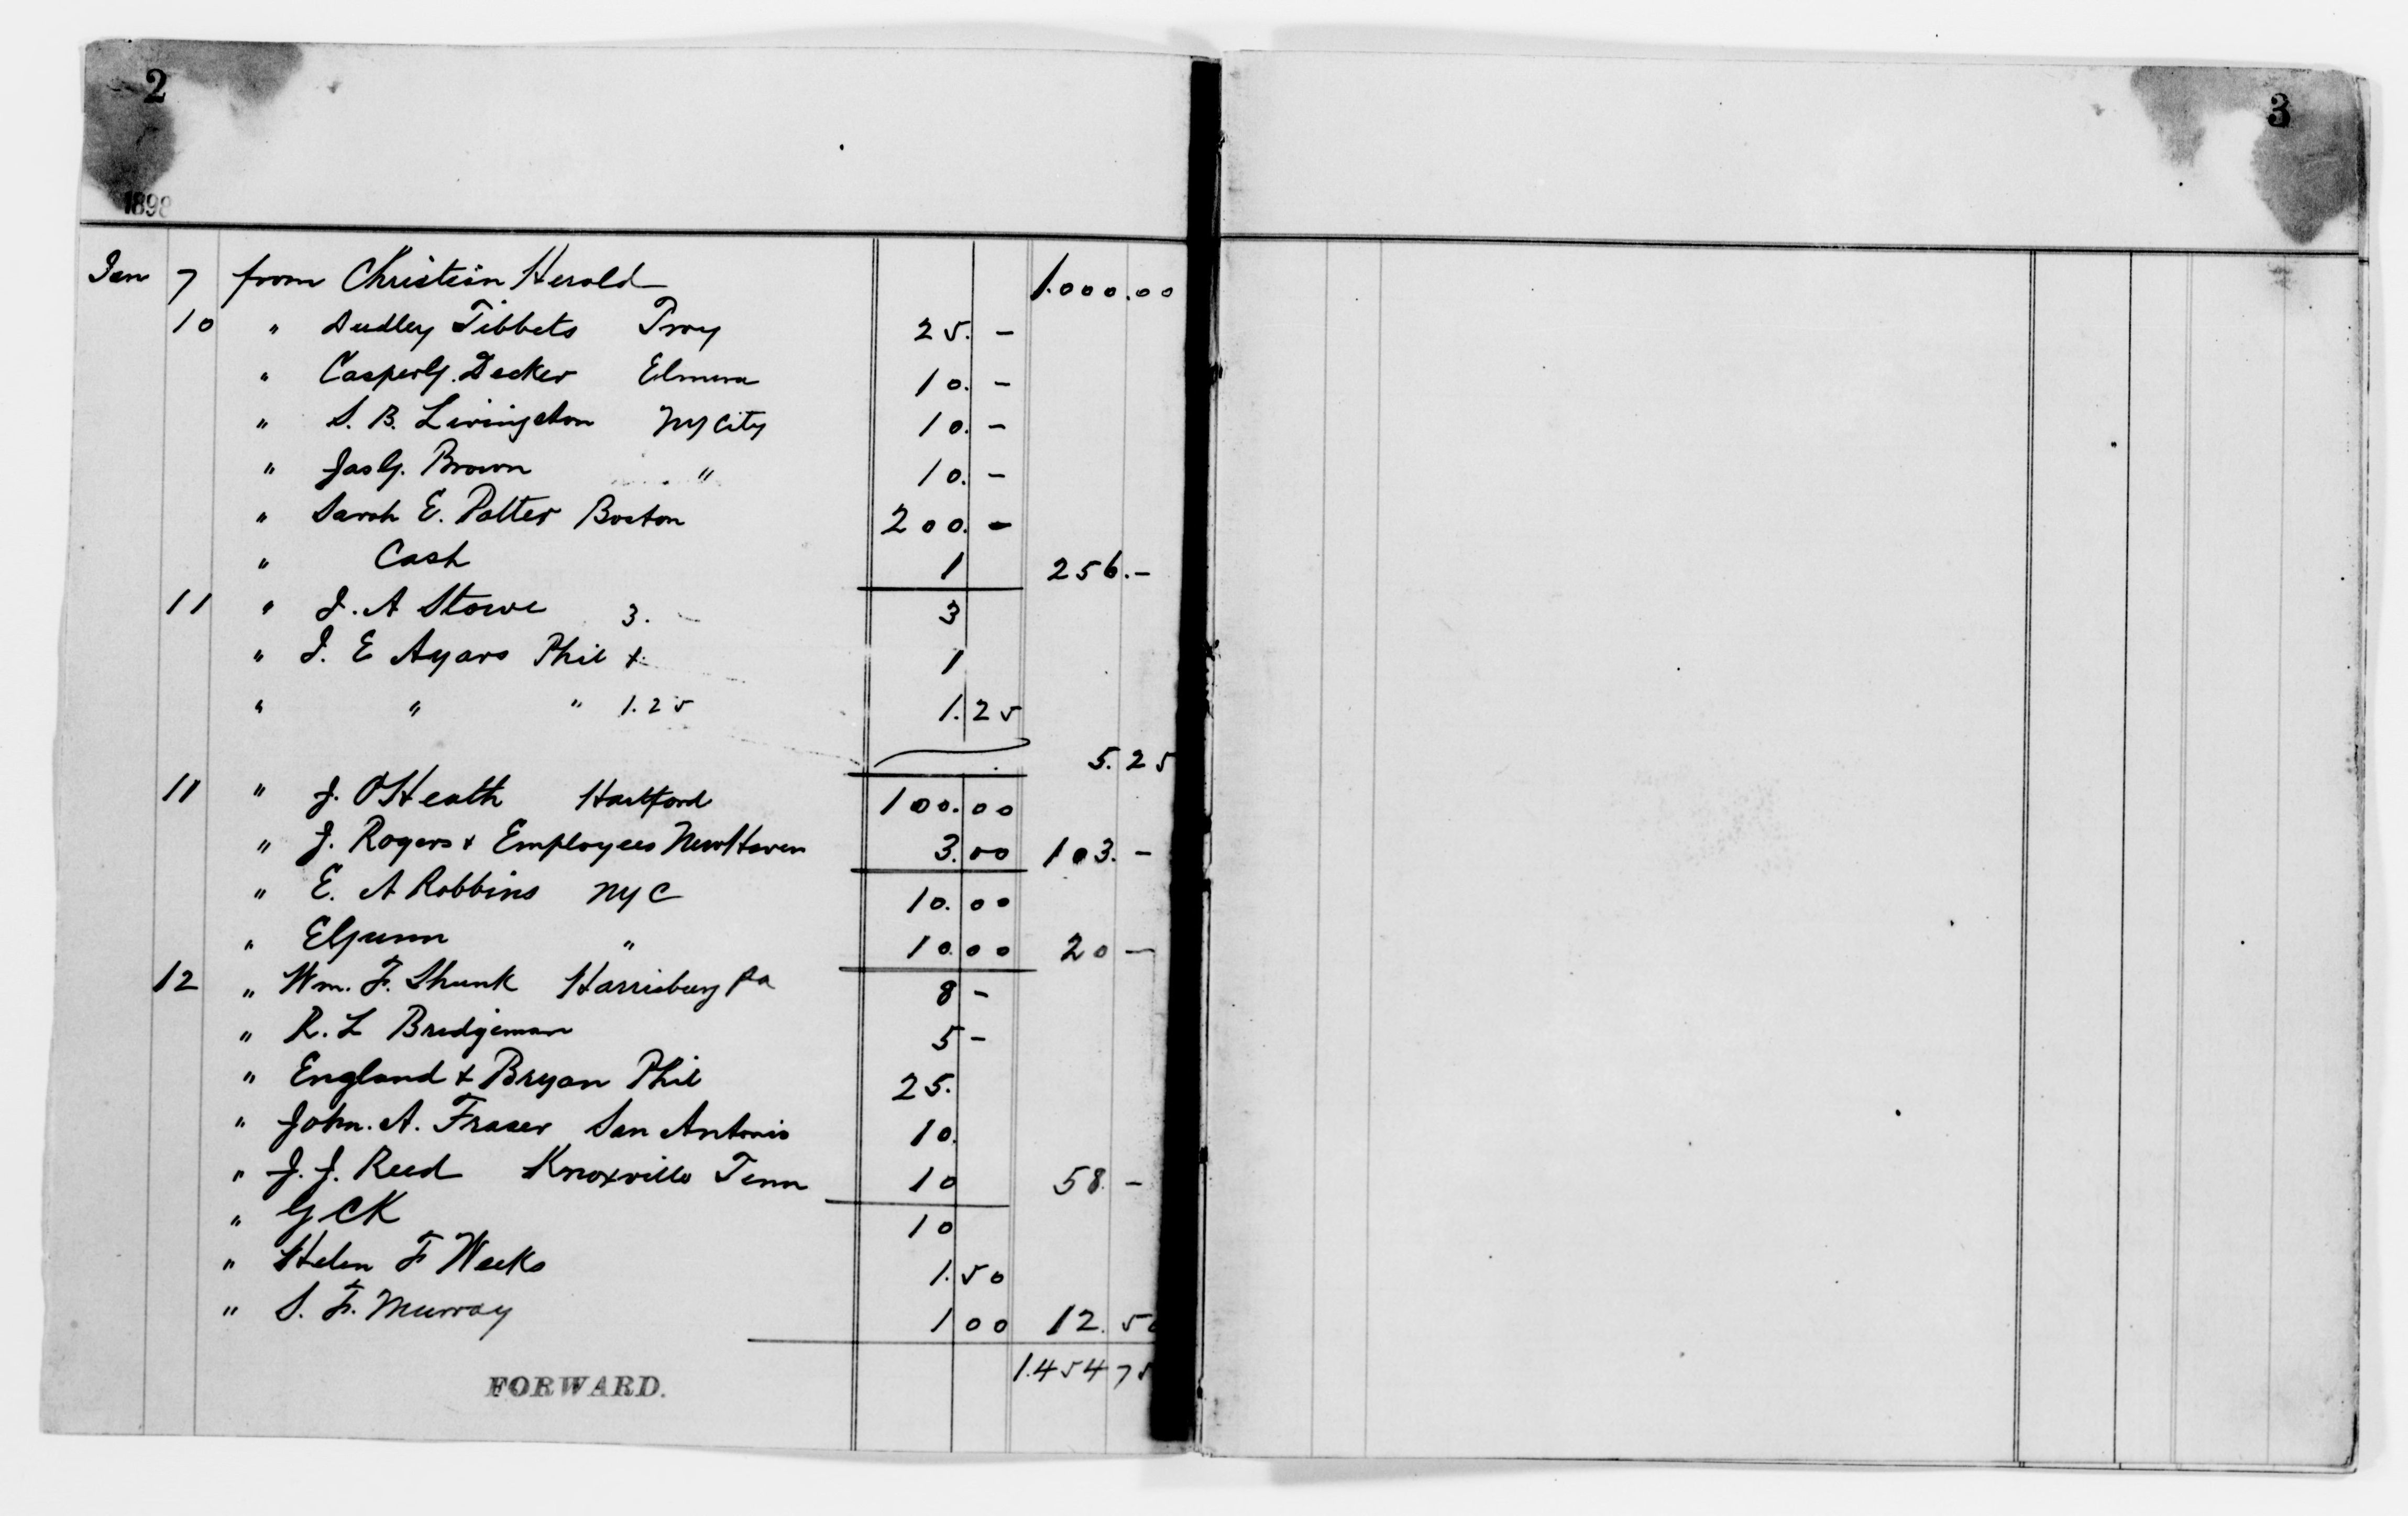 2
3
1898
Jan 7 from Christian Herald 1.000.00
10 " Dudley Tibbets Troy 25. -
" Casper G. Decker Elmira 10. -
" S. B. Livingston NY City 10. -
" Jas G. Brown " 10. -
" Sarah E. Potter Boston 200. -
" Cash 1 256. -
11 " J. A Stowe 3. 3
" J. E Ayars Phil 1
" " " 1.25 1.25
5.25
11 " J. O Heath Hartford 100.00
" J. Rogers + Employees New Haven 3.00 103. -
" E. A Robbins NYC 10.00
" E Gunn " 10.00 20 -
12 " Wm. F. Shunk Harrisburg Pa 8 -
" R. L Bridgeman 5 -
" England + Bryan Phil 25.
" John. A. Fraser San Antonio 10.
" J. J. Reed Knoxville Tenn 10 58. -
" G C K 10
" Helen F Weeks 1.50
" S. F. Murray 1 00 12.50
1.454 75
FORWARD.